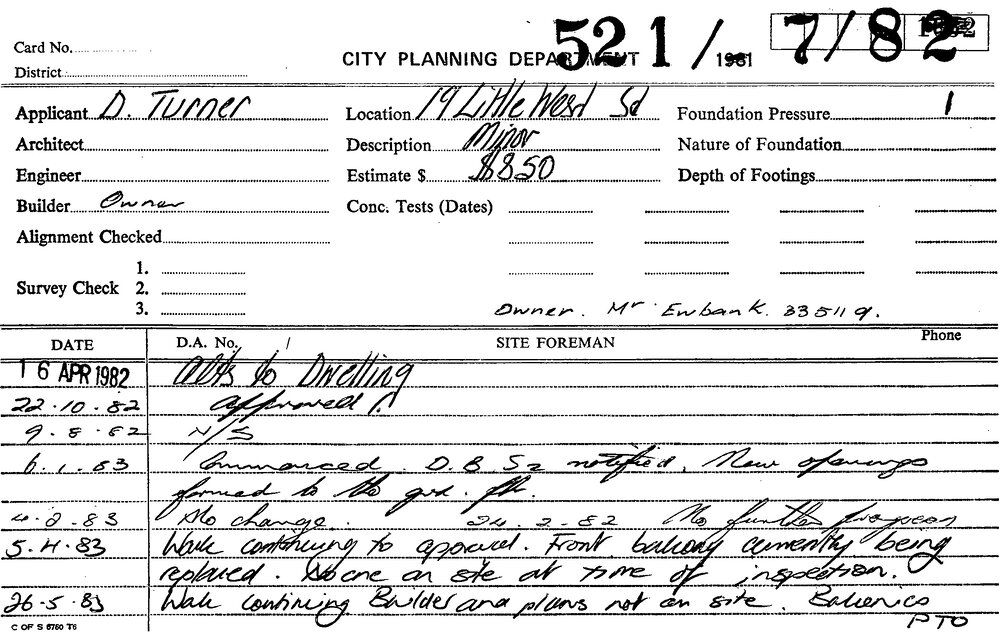 521/ 7/82
Card No.
CITY PLANNING DEPARTMENT 1981
District
Applicant D. Turner Location 19 Little West St Foundation Pressure 1
Architect Description Minor Nature of Foundation
Engineer Estimate $ $850 Depth of Footings
Builder Owner Conc. Tests (Dates)
Alignment Checked
1.
Survey Check 2.
3. Owner. Mr Ewbank. 335119.
DATE D.A. No. / SITE FOREMAN Phone
16 APR 1982 Alts to Dwelling
22.10.82 approved
9.8.82 N/S
6.1.83 Commenced. D.B.S2 notified. New openings
formed to the grd. flr.
4.2.83 No change. 24.2.82 No further progress
5.4.83 Work continuing to approval. Front balcony currently being
replaced. No one on site at time of inspection.
26.5.83 Work continuing Builder and plans not on site. Balconies
PTO
C OF S 6760 T6